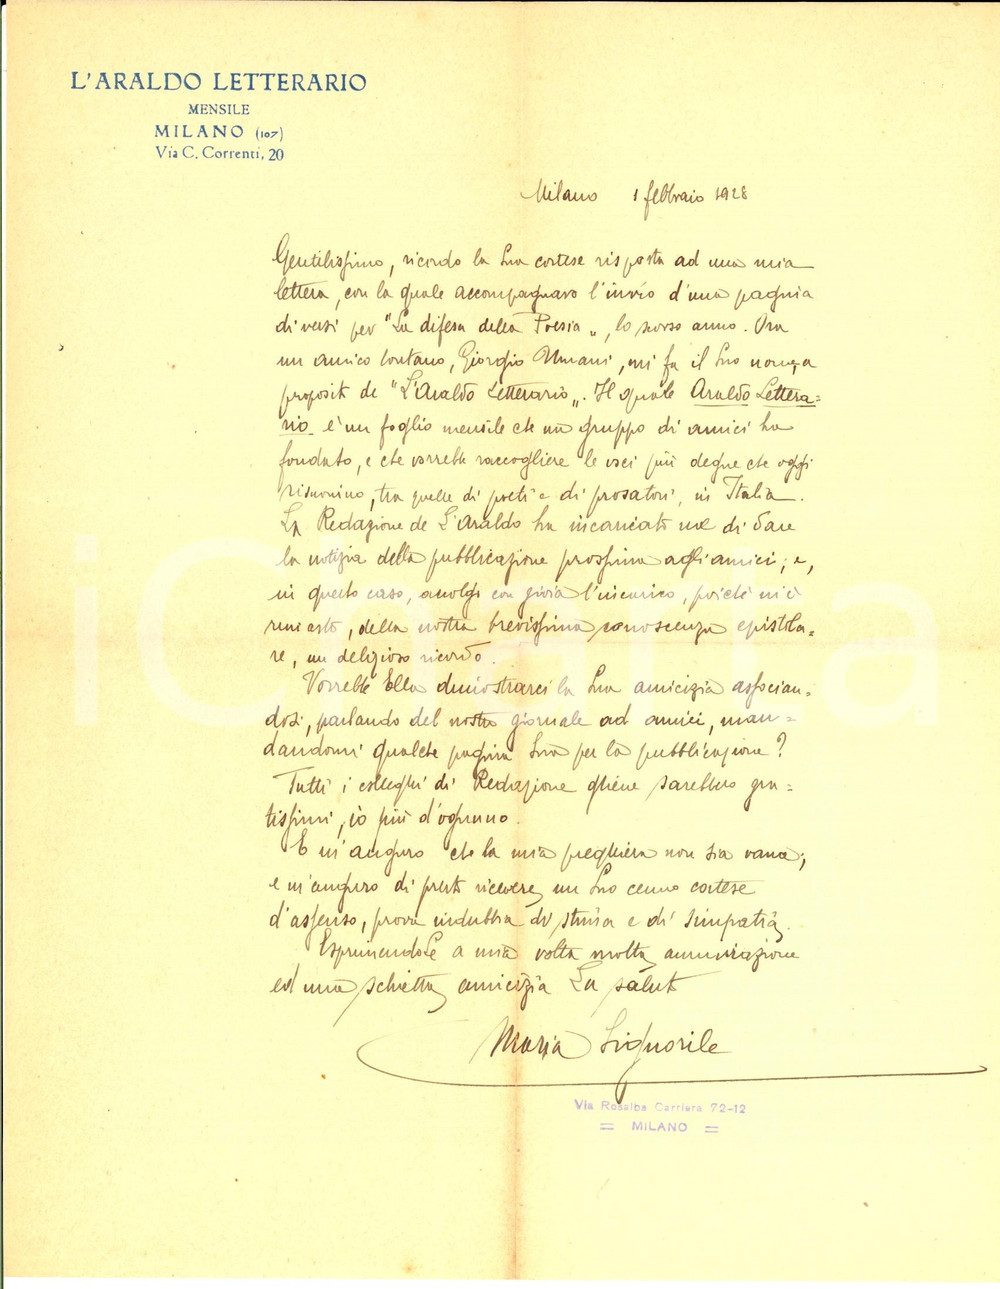 L'ARALDO LETTERARIO
MENSILE
MILANO (107)
Via C. Correnti, 20
Milano 1 febbraio 1928
Gentilissimo, ricordo la Sua cortese risposta ad una mia
lettera, con la quale accompagnavo l'invio d'una pagina
di versi per "La difesa della Poesia„, lo scorso anno. Ora
un amico lontano, Giorgio Umani, mi fa il Suo nome, a
proposito de "L'Araldo Letterario„. Il quale Araldo Lettera=
rio è un foglio mensile che un gruppo di amici ha
fondato, e che vorrebbe raccogliere le voci più degne che oggi
risuonino, tra quelle di poeti e di prosatori, in Italia.
La Redazione de L'Araldo ha incaricato me di dare
la notizia della pubblicazione prossima agli amici; e,
in questo caso, accolgo con gioia l'incarico, poiché mi è
rimasto, della nostra brevissima conoscenza epistola=
re, un delizioso ricordo.
Vorrebbe Ella dimostrarci la Sua amicizia associan=
dosi, parlando del nostro giornale ad amici, man=
dandomi qualche pagina Sua per la pubblicazione?
Tutti i colleghi di Redazione gliene sarebbero gra=
tissimi, io più d'ognuno.
E m'auguro che la mia preghiera non sia vana;
e m'auguro di presto ricevere un Suo cenno cortese
d'assenso, prova indubbia di stima e di simpatia.
EsprimendoLe a mia volta molta ammirazione
ed una schietta amicizia La saluto
Maria Signorile
Via Rosalba Carriera 72-12
= MILANO =
iCharta